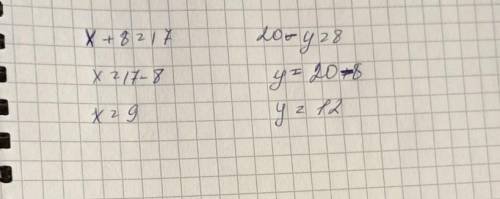 x + 8 = 17
x = 17 - 8
x = 9
20 - y = 8
y = 20 - 8
y = 12